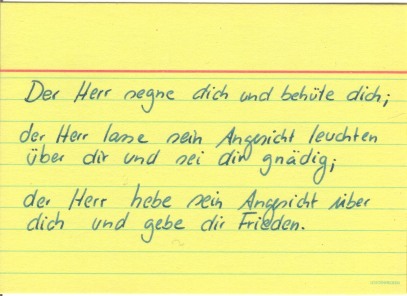 Der Herr segne dich und behüte dich;
der Herr lasse sein Angesicht leuchten
über dir und sei dir gnädig;
der Herr hebe sein Angesicht über
dich und gebe dir Frieden.